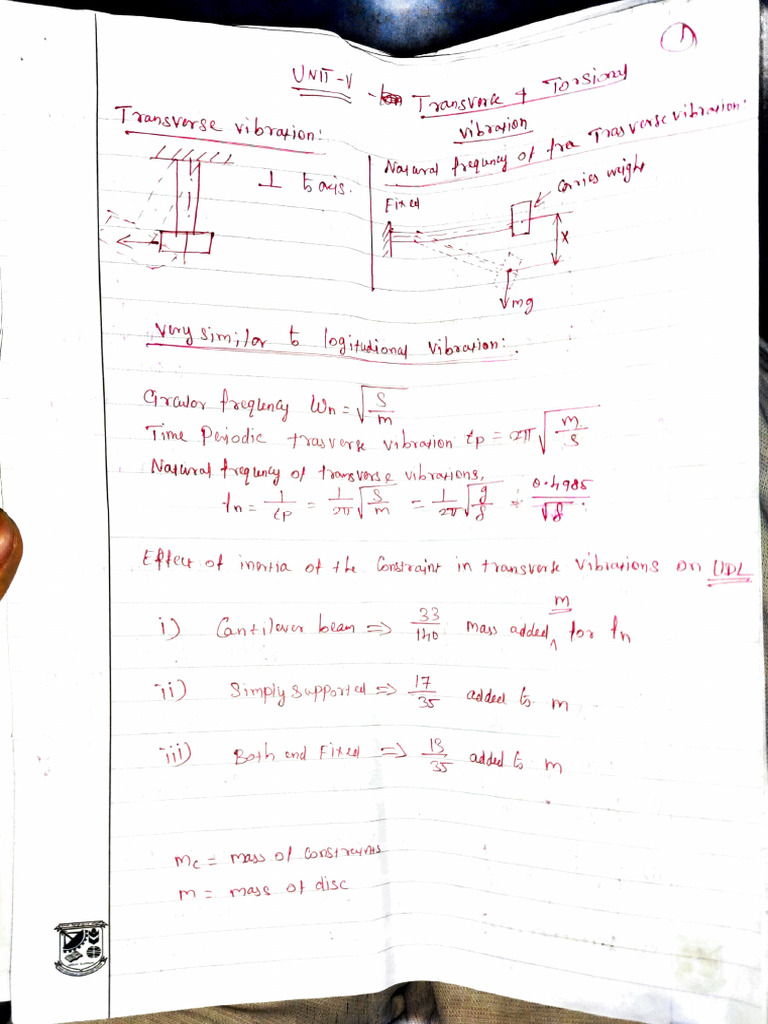 1
UNIT-V - Transverse & Torsional
vibration
Transverse vibration:
⊥ to axis.
Natural frequency of free Trasverse vibration:
Fixed
Carries weight
x
mg
Very similar to logitudional vibration:
Circular frequency Wn = √(S/m)
Time Periodic trasverse vibration tp = 2π √(m/s)
Natural frequency of transverse vibrations,
fn = 1/tp = 1/2π √(S/m) = 1/2π √(g/δ) = 0.4985/√δ
Effect of inertia of the Constraint in transverse vibrations on UDL
i) Cantilever beam => 33/140 mass added m for fn
ii) Simply supported => 17/35 added to m
iii) Both end Fixed => 13/35 added to m
mc = mass of constraints
m = mass of disc